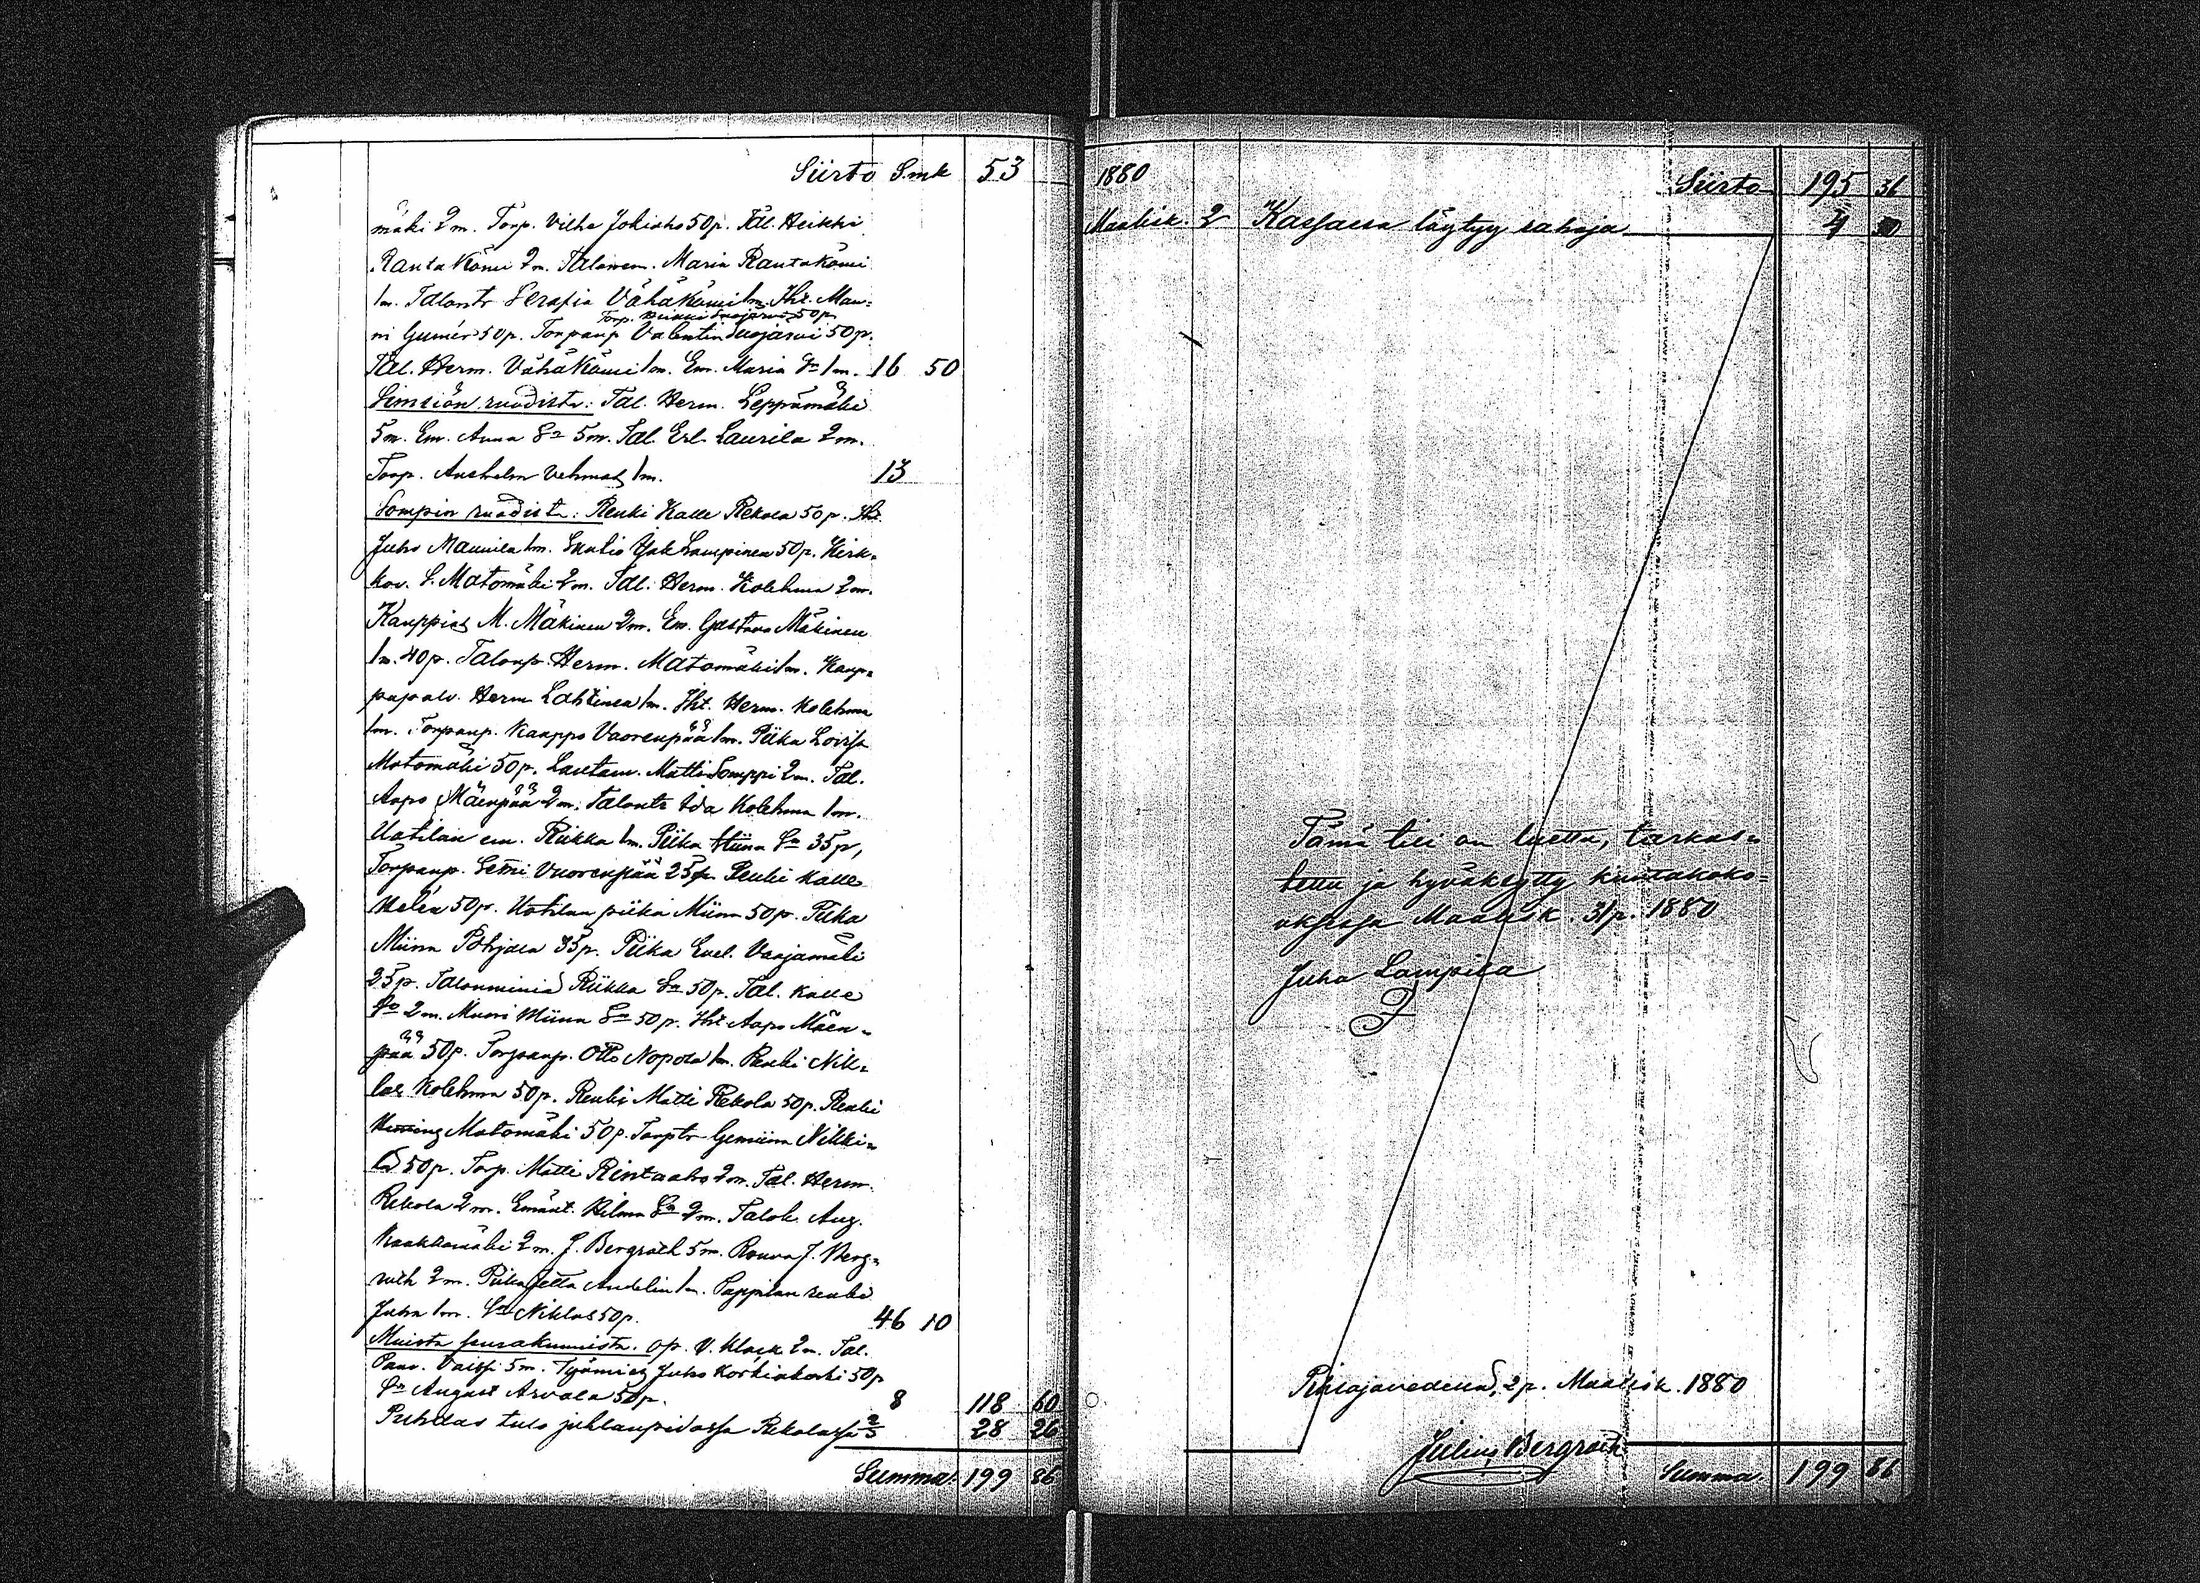 Siirto Smk 53
mäki 2 m. Torp. Vilhe Jokiaho 50 p. Tal. Heikki
Rautakömi 2 m. Talonem. Maria Rautakömi
1 m. Talontr Serafia Vähäkömi 1 m. Iht. Man-
Torp. Heikki Suojärvi 50 p.
ni Gumér 50 p. Torpanp Valentin Suojärvi 50 p.
Tal. Herm. Vähäkömi 1 m. Em. Maria Sn 1 m. 16 50
Simsiön ruodista: Tal. Herm. Leppämäki
5 m. Em. Anna Sn 5 m. Tal. Erl. Laurila 2 m.
Torp. Anshelm Vehmas 1 m. 13
Sompin ruodista: Renki Kalle Rekola 50 p. Iht.
Juho Maunila 1 m. Lampinen 50 p. Kirk-
kov. S. Matomäki 2 m. Tal. Herm. Kolehma 2 m.
Kauppias M. Mäkinen 2 m. Em. Gustava Mäkinen
1 m. 40 p. Talonp. Herm. Matomäki 1 m. Kaup-
papalv. Herm Lahtinen 1 m. Iht. Herm. Kolehma
1 m. Torpanp. Kaappo Vuorenpää 1 m. Piika Lovisa
Matomäki 50 p. Lautam. Matti Somppi 2 m. Tal.
Aapo Mäenpää 2 m. Talontr Ida Kolehma 1 m.
Uotilan em. Riikka 1 m. Piika Miina Sn 35 p,
Torpanp. Vuorenpää 25 p. Renki Kalle
50 p. Uotilan piika Miina 50 p. Piika
Miina Pohjola 35 p. Piika Evel. Vanjamäki
25 p. Riikka Sn 50 p. Tal. Kalle
Sn 2 m. Muori Miina Sn 50 p. Iht Aapo Mäen-
pää 50 p. Torpanp. Otto Nopola 1 m. Renki Nik-
las Kolehma 50 p. Renki Matti Rekola 50 p. Renki
Matomäki 50 p. Torptr Gemiina Nikki-
lä 50 p. Torp. Matti Rintaaho 2 m. Tal. Herm.
Rekola 2 m. Emänt. Hilma Sn 2 m. Talok. Aug.
Kaakkomäki 2 m. J. Bergroth 5 m. Rouva J. Berg-
roth 2 m. Piika Jetta Andelin 1 m. Pappilan renki
Juha 1 m. Sn Niklas 50 p. 46 10
Muista seurakunnista. Op. V. Klock 2 m. Tal.
5 m. Työmies Juho Korkiakoski 50 p
Sn August Arvola 50 p. 8 118 60
Puhdas tulo juhlanpidossa Rekolassa 2/3 28 26
Summa 199 86
1880 Siirto 195 36
Maalisk. 2 Kassassa löytyy rahoja 4 50
Tämä tili on luettu, tarkas-
tettu ja hyväksytty kuntakoko-
uksessa Maalisk. 31 p. 1880
Juha Lampila
Pihlajavedellä, 2 p. Maalisk. 1880
Julius Bergroth
Summa 199 86